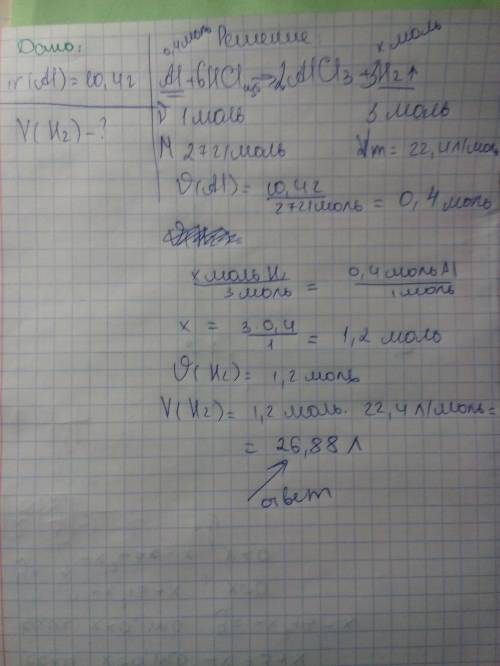 Дано:
m(Al)=10,4г
V(H2)-?
Решение
0,4 моль x моль
Al+6HCl изб→2AlCl3+3H2↑
ν 1 моль 3 моль
M 27г/моль Vm=22,4л/моль
ν(Al)=10,4г/27г/моль=0,4 моль
x моль H2/3 моль=0,4 моль Al/1 моль
x=3·0,4/1=1,2 моль
ν(H2)=1,2 моль
V(H2)=1,2 моль·22,4 л/моль=
=26,88 л
ответ